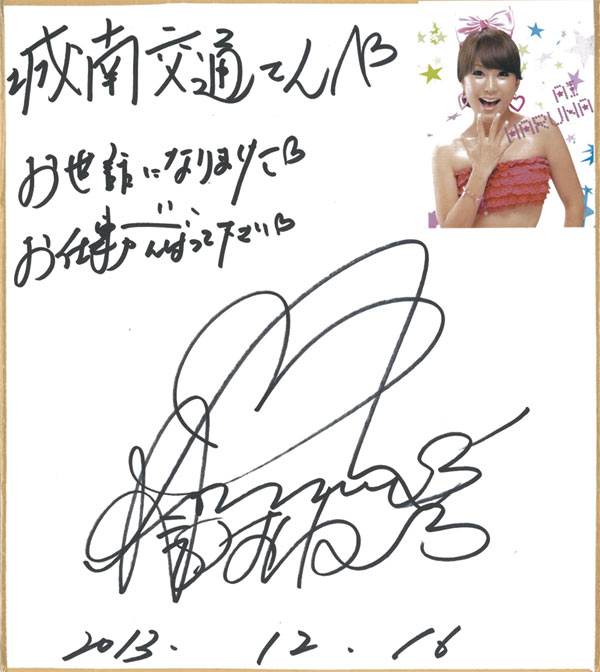 城南交通さん♡
AI
HARUNA
お世話になりました♡
お仕事がんばって下さい♡
2013. 12. 16